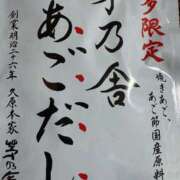 限定
焼きあご、
あご節国産原料
乃舎
あごだし
創業明治二十六年 久原本家